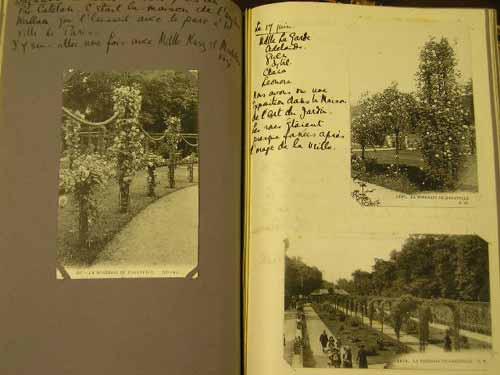 du Catelan. C'était la maison de
Wallace qui l'a laissé avec le parc à la
ville de Paris.
J'y suis allée une fois avec Mlle
LA ROSERAIE DE BAGATELLE
Le 17 juin
Mlle La Garde
Adelaide.
Gwen
Sybil
Clara
Leonora
Nous avons vu une
Exposition dans la Maison
de l'art du Jardin.
Les roses étaient
presque fanées après
l'orage de la veille.
LA ROSERAIE DE BAGATELLE
LA ROSERAIE DE BAGATELLE